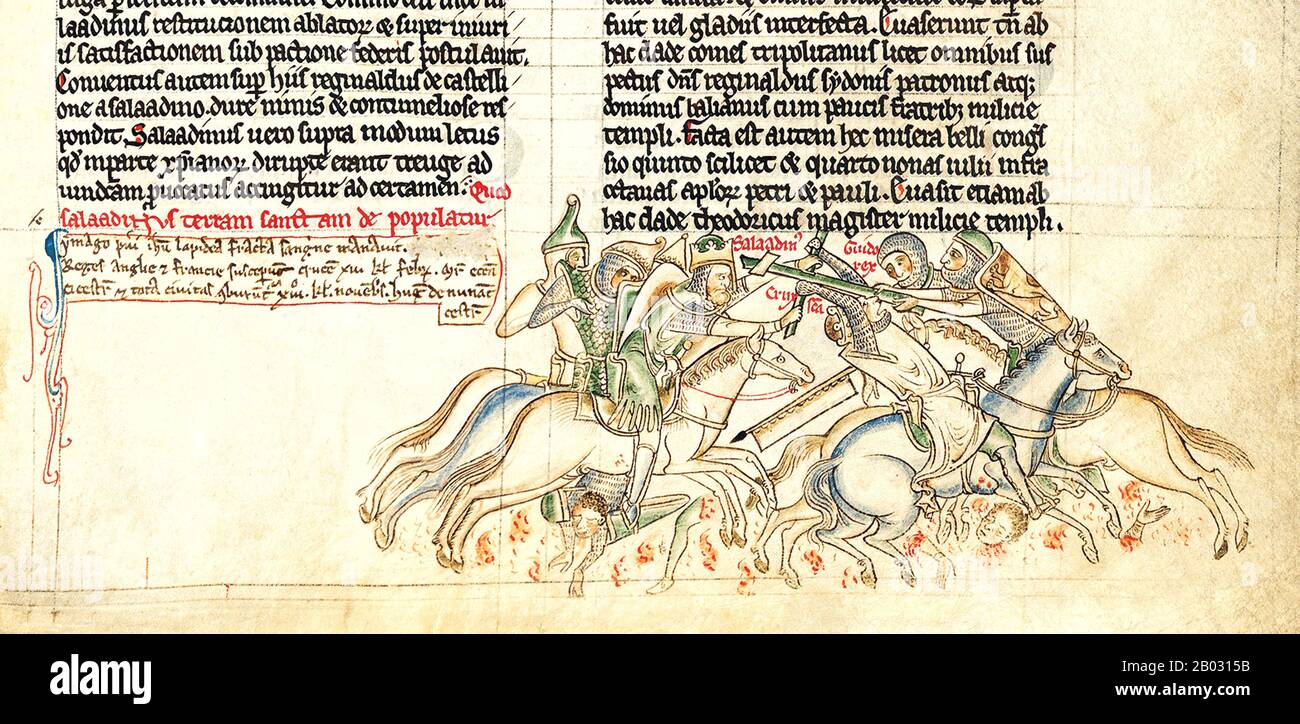 laadinus restitucionem ablatorum & super iniuri
is satisfactionem sub pactione federis postulauit.
Conuentus autem sup hiis reginaldus de castelli
one a salaadino. dure nimis & contumeliose res
pondit. Salaadinus uero supra modum letus
qd in parte xpianor dirupte erant treuge ad
uindictam accingitur ad certamen. Quod
salaadinus terram sanctam de populatur
ymago pueri ihu lapidea fracta sangne manauit.
Reges Anglie & Francie susceperunt crucem xiii kl febr.
cicestr & tota civitas kl. nouebr.
cestr
fuit uel gladiis interfecta. Euaserunt tn ab
hac clade comes tripolitanus licet omnibus sus
pectus dns reginaldus sydonis patronus atq;
dominus balianus cum paucis fratribz milicie
templi. Facta est autem hec misera belli congs
sio quinto scilicet & quarto nonas iulii infra
octauas aplor petri & pauli. Euasit etiam ab
hac clade theodoricus magister milicie templi.
Salaadin
Guido
rex
Crux
sca
alamy
alamy
Image ID: 2B0315B
www.alamy.com